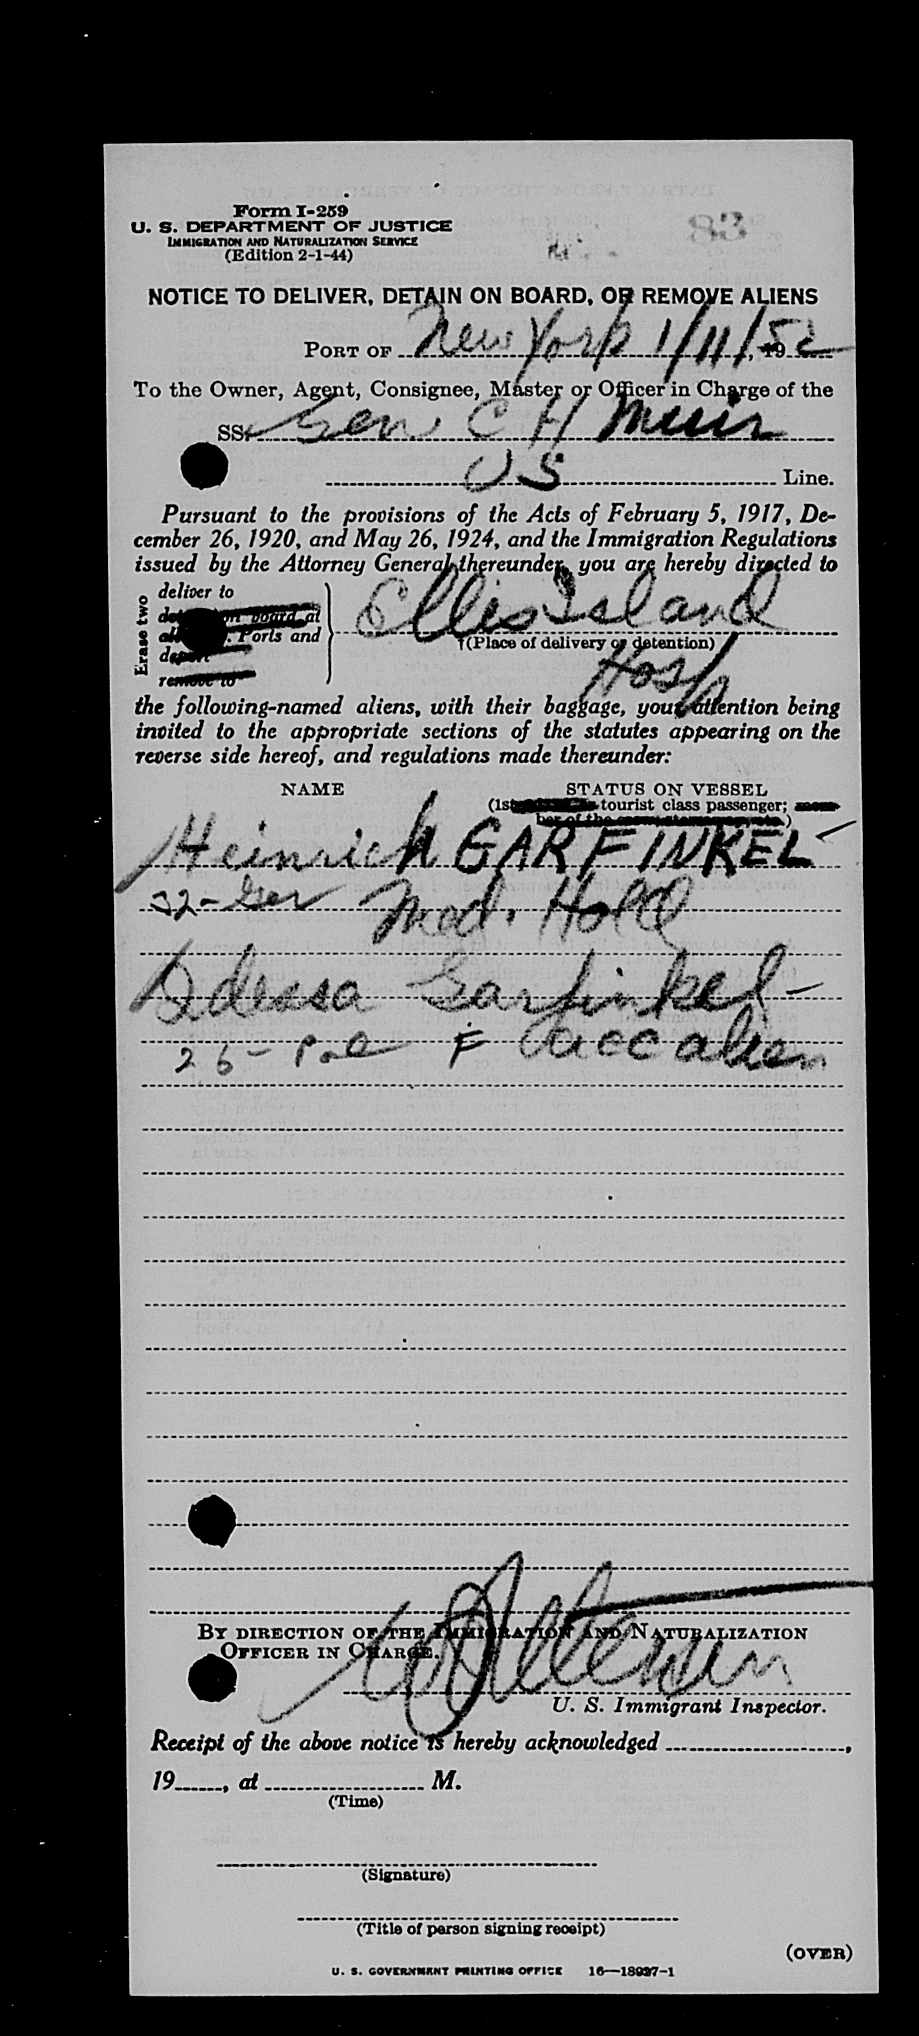 Form I-259
83
U. S. DEPARTMENT OF JUSTICE
IMMIGRATION AND NATURALIZATION SERVICE
(Edition 2-1-44)
NOTICE TO DELIVER, DETAIN ON BOARD, OR REMOVE ALIENS
PORT OF New York 1/11/, 1952
To the Owner, Agent, Consignee, Master or Officer in Charge of the
SS Gen C H Muir
US Line.
Pursuant to the provisions of the Acts of February 5, 1917, De-
cember 26, 1920, and May 26, 1924, and the Immigration Regulations
issued by the Attorney General thereunder, you are hereby directed to
Erase two
deliver to
on board at
Ports and
deport
remove to
Ellis Island
†(Place of delivery or detention)
Hosp
the following-named aliens, with their baggage, your attention being
invited to the appropriate sections of the statutes appearing on the
reverse side hereof, and regulations made thereunder:
NAME STATUS ON VESSEL
(1st tourist class passenger;
ber of the )
Heinrich GARFINKEL
32- Ger Med. Hold
Odessa Garfinkel-
26- Pol F acc alien
BY DIRECTION OF THE IMMIGRATION AND NATURALIZATION
OFFICER IN CHARGE.
U. S. Immigrant Inspector.
Receipt of the above notice is hereby acknowledged ,
19 , at M.
(Time)
(Signature)
(Title of person signing receipt)
(OVER)
U. S. GOVERNMENT PRINTING OFFICE 16—18927-1